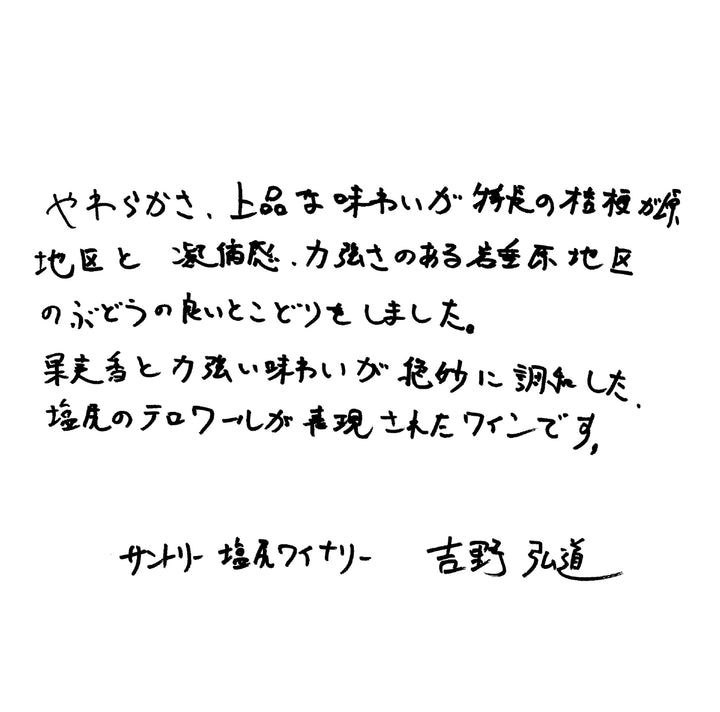 やわらかさ、上品な味わいが特長の桔梗が原
地区と凝縮感、力強さのある岩垂原地区
のぶどうの良いとこどりをしました。
果実香と力強い味わいが絶妙に調和した、
塩尻のテロワールが表現されたワインです。
サントリー 塩尻ワイナリー 吉野 弘道